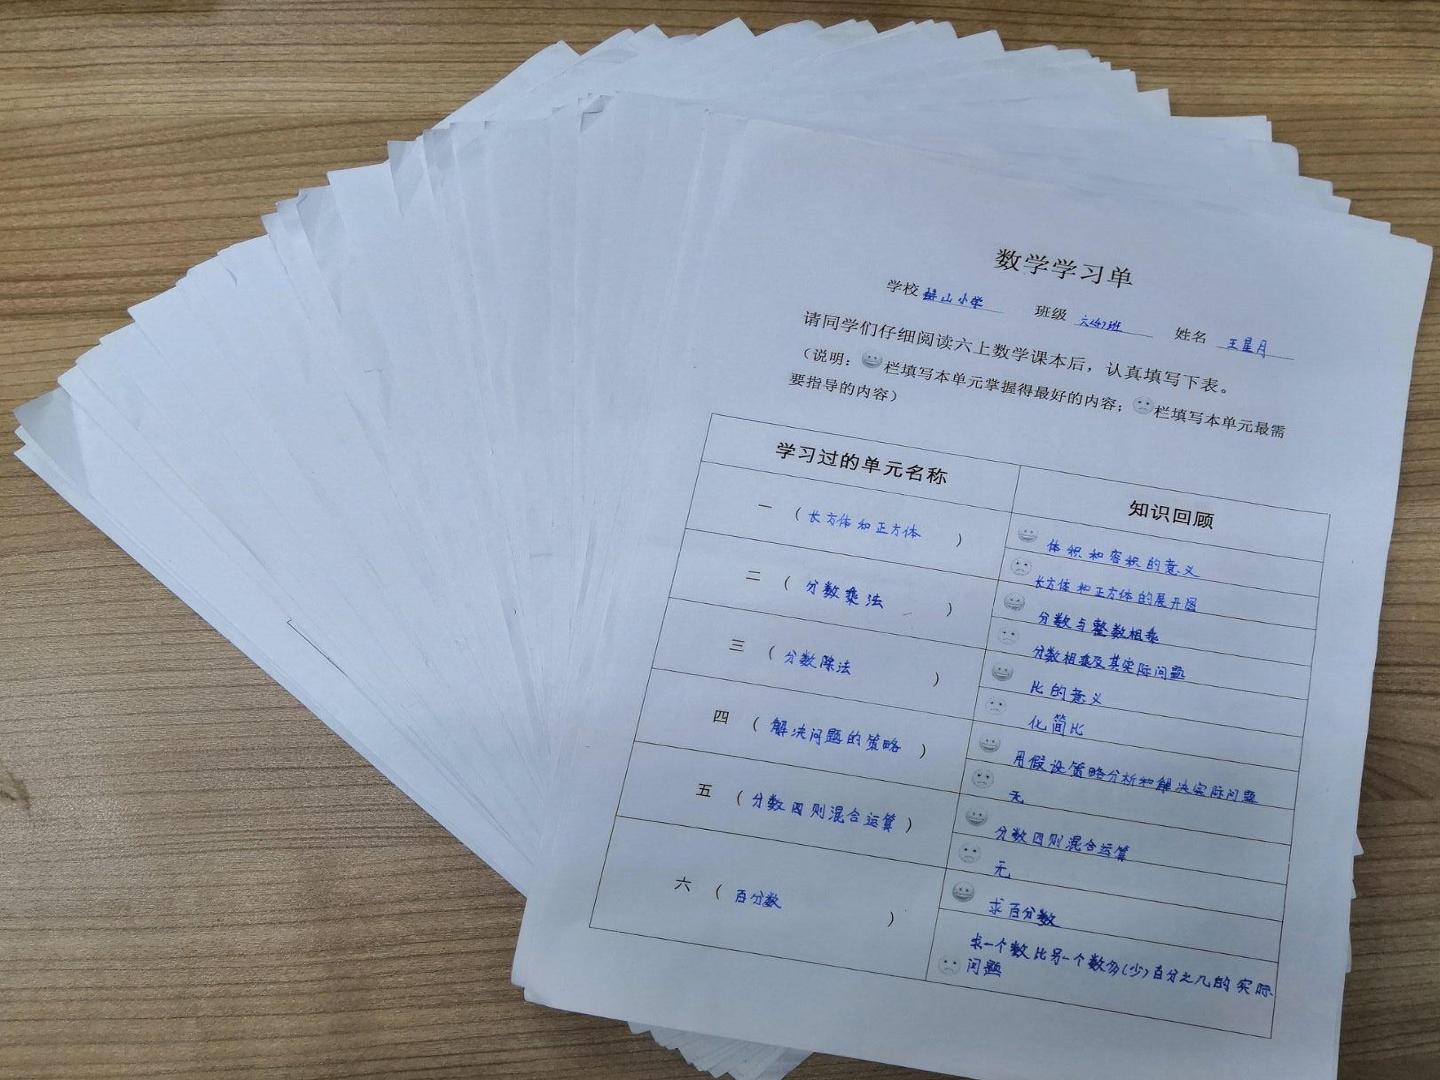 数学学习单
学校 山小学 班级 六(4)班 姓名 王星月
请同学们仔细阅读六上数学课本后，认真填写下表。
（说明： 栏填写本单元掌握得最好的内容； 栏填写本单元最需
要指导的内容）
学习过的单元名称 知识回顾
一 （ 长方体和正方体 ）
体积和容积的意义
长方体和正方体的展开图
二 （ 分数乘法 ）
分数与整数相乘
分数相乘及其实际问题
三 （ 分数除法 ）
比的意义
化简比
四 （ 解决问题的策略 ）
用假设策略分析和解决实际问题
无
五 （ 分数四则混合运算 ）
分数四则混合运算
无
六 （ 百分数 ）
求百分数
求一个数比另一个数多(少)百分之几的实际
问题